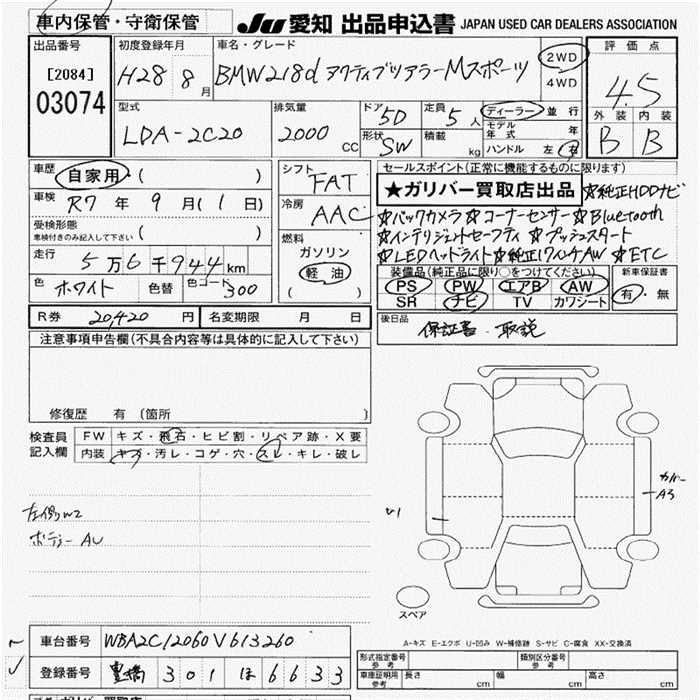 車内保管・守衛保管 JU 愛知 出品申込書 JAPAN USED CAR DEALERS ASSOCIATION
出品番号 [2084] 03074
初度登録年月 H28 8月
車名・グレード BMW218d アクティブツアラーMスポーツ
2WD 4WD
評価点 4.5
外装 内装
B B
型式 LDA-2C20
排気量 2000 CC
ドア 5D 定員 5人
形状 SW 積載 kg
ディーラー 並行
モデル年式 年
ハンドル 左 右
車歴 自家用・( )
車検 R7年9月(1日)
受検形態 車検付きのみ記入して下さい ( )
走行 5万6千944km
色 ホワイト 色替 色コード 300
シフト FAT
冷房 AAC
燃料 ガソリン 軽油 ( )
セールスポイント(正常に機能するものに限ります)
★ガリバー買取店出品 ☆純正HDDナビ
☆バックカメラ☆コーナーセンサー☆Bluetooth
☆インテリジェントセーフティ ☆プッシュスタート
☆LEDヘッドライト☆純正17インチAW ☆ETC
装備品(純正品に限り○をつけてください) 新車保証書
PS PW エアB AW 有・無
SR ナビ TV カワシート
R券 20,420円 名変期限 月 日
後日品 保証書・取説
注意事項申告欄(不具合内容等は具体的に記入して下さい)
修復歴 有(箇所 )
検査員記入欄 FW キズ・飛石・ヒビ割・リペア跡・X要
内装 キズ・汚レ・コゲ・穴・スレ・キレ・破レ
カバー A3
左側W2
U1
ボデーAU
スペア
車台番号 WBA2C12060V613260
登録番号 豊橋 301 ほ 6633
A-キズ E-エクボ U-凹み W-補修跡 S-サビ C-腐食 XX-交換済
形式指定番号 参考 類別区分番号 参考
車庫証明用 参考 長さ cm 幅 cm 高さ cm